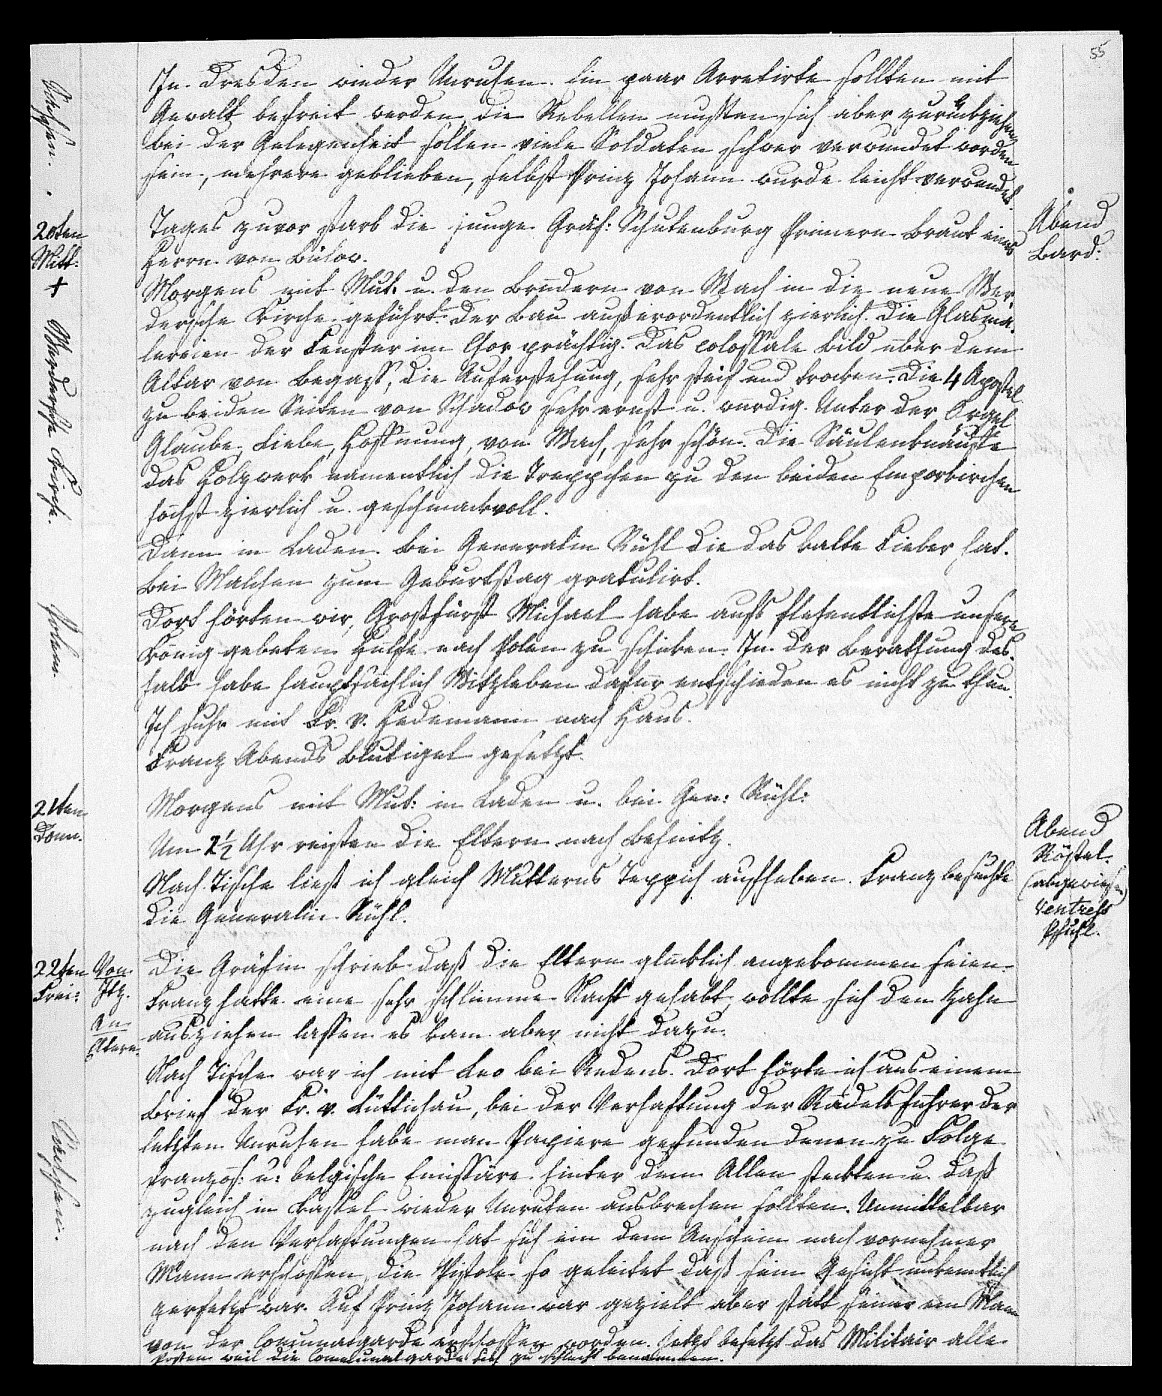 55
Sachsen.
In Dresden wieder Unruhen. Ein paar Arretirte sollten mit
Gewalt befreit werden, die Rebellen mußten sich aber zurückziehen
bei der Gelegenheit sollen viele Soldaten schwer verwundet worden
sein, mehrere geblieben, selbst Prinz Johann wurde leicht verwundet.
20ten
Mitt:
Tages zuvor starb die junge Gräf: Schulenburg Primern Braut eines
Herrn von Bülow.
Abend
Bard:
Werdersche Kirche.
Morgens mit Mut. u. den Brüdern von Wach in die neue Wer-
dersche Kirche geführt. Der Bau außerordentlich zierlich. Die Glasma-
lereien der Fenster im Chor prächtig. Das colossale Bild über dem
Altar von Begass, die Auferstehung, sehr steif und trocken. Die 4 Apostel
zu beiden Seiten von Schadow sehr ernst u. würdig. Unter der Orgel
Glaube, Liebe, Hoffnung, von Wach, sehr schön. Die Säulenknäufe
das Holzwerk namentlich die Treppchen zu den beiden Emporkirchen
höchst zierlich u. geschmackvoll.
Dann in Laden. Bei Generalin Rühl die das kalte Fieber hat.
Bei Malchen zum Geburtstag gratulirt.
Polen.
Dort hörten wir, Großfürst Michael habe aufs flehentlichste unsern
König gebeten Hülfe nach Polen zu schicken. In der Berathung des-
halb habe hauptsächlich Witzleben dafür entschieden es nicht zu thun.
Ich fuhr mit Fr. v. Hedemann nach Haus.
Franz Abends Blutigel gesetzt.
21ten
Donn.
Morgens mit Mut: in Laden u. bei Gen: Rühl:
Um 2½ Uhr reisten die Eltern nach Behnitz.
Nach Tische ließ ich gleich Mutterns Teppich aufheben. Franz besuchte
die Generalin Rühl.
Abend
Röstel.
(abgewiesen)
Lentress
Pfuhl.
22ten
Frei:
Von
Itz.
An
Eltern.
Die Gräfin schrieb daß die Eltern glücklich angekommen seien.
Franz hatte eine sehr schlimme Nacht gehabt, wollte sich den Zahn
ausziehen lassen es kam aber nicht dazu.
Sachsen.
Nach Tische war ich mit Leo bei Redens. Dort hörte ich aus einem
Brief der Fr. v. Lüttichau, bei der Verhaftung der Rädelsführer der
letzten Unruhen habe man Papiere gefunden denen zu Folge
französ: u. belgische Emissäre hinter dem Allen steckten u. daß
zugleich in Cassel wieder Unruhen ausbrechen sollten. Unmittelbar
nach den Verhaftungen hat sich ein dem Anschein nach vornehmer
Mann erschossen, die Pistole so geleitet daß sein Gesicht unkenntlich
zerfetzt war. Auf Prinz Johann war gezielt aber statt seiner ein Mann
von der Communalgarde erschossen worden. Jetzt besetzt das Militair alle
Posten weil die Communalgarde sich zu schlecht benommen.